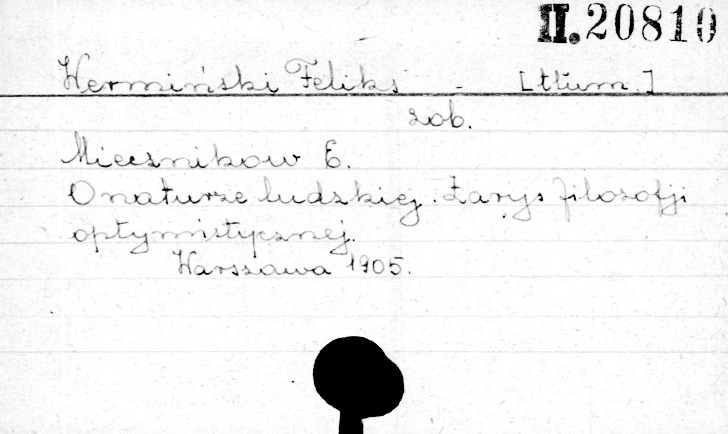 II. 20810
Wermiński Feliks - [tłum.]
zob.
Miecznikow E.
O naturze ludzkiej. Zarys filozofji
optymistycznej.
Warszawa 1905.